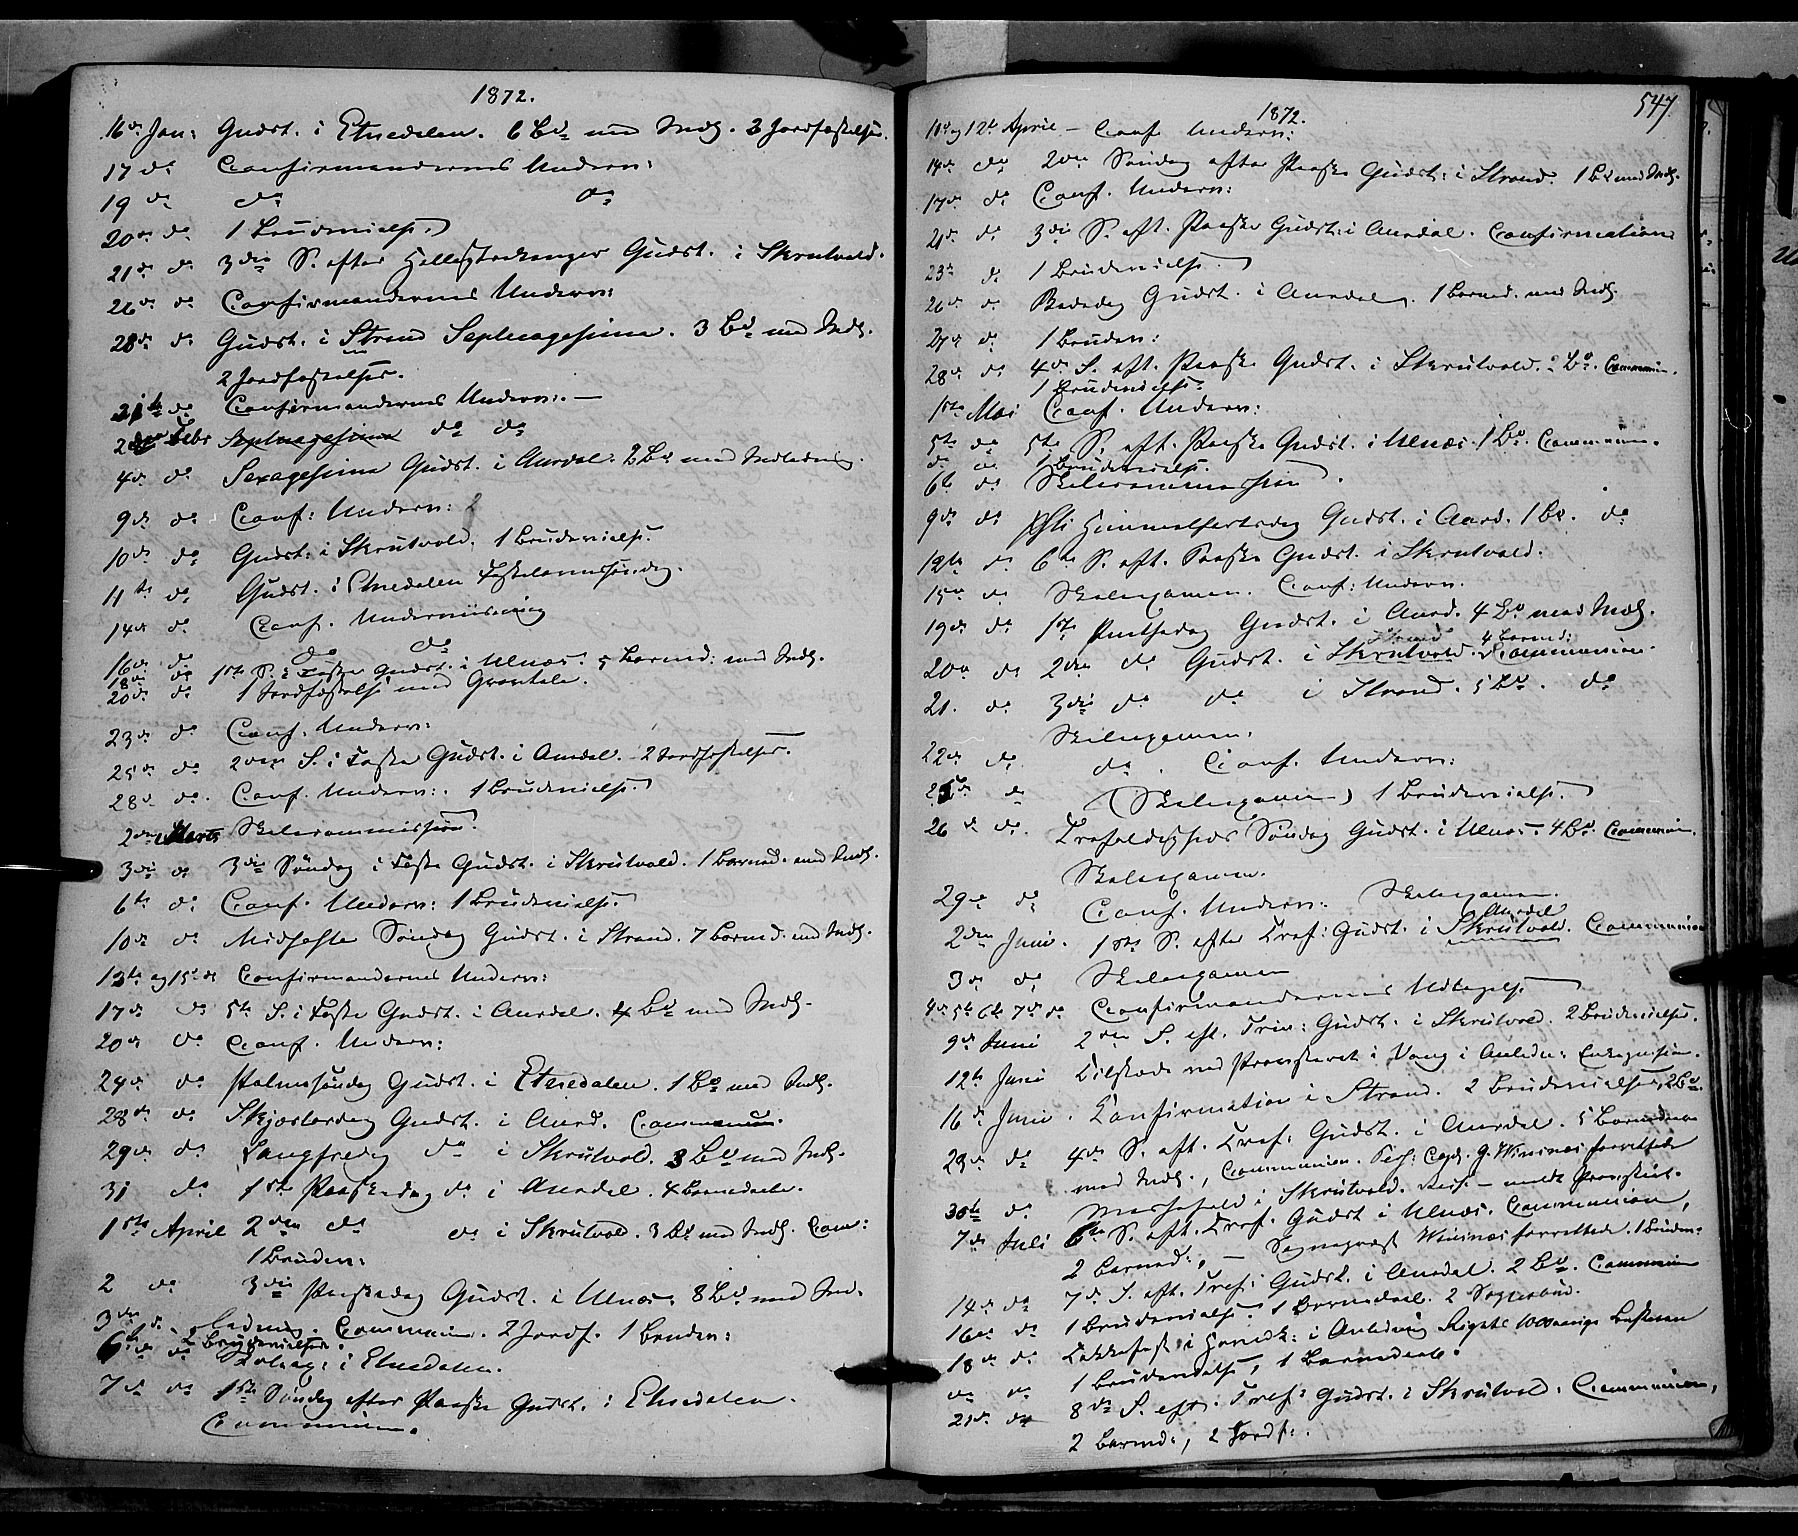 1872.
16de Jan: Gudst. i Etnedalen. 6 Bd med Indl. 3 Jordfæstelser.
17 do Confirmandernes Underv:
19 do do do
20de do 1 Brudevielse.
21de do 3die S. efter Helligtrekonger Gudst. i Skrutvold.
26de do Confirmandernes Underv:
28de do Gudst. i Strand Septuagesima. 3 Bd med Indl.
2 Jordfæstelser.
31te do Confirmandernes Underv: —
2den Febr Septuagesima do do
4de do Sexagesima Gudst. i Aurdal. 2 Bd med Indledning.
9de do Conf: Underv:
10de do Gudst: i Skrutvold. 1 Brudevielse.
11te do Gudst. i Etnedalen Fastelavnssøndag.
14de do Conf. Underviisning
16de do do do
18de do 1ste S. i Faste Gudst. i Ulnæs. 5 Barnd: med Indl.
20de do 1 Jordfæstelse med Gravtale.
23de do Conf. Underv:
25de do 2den S. i Faste Gudst. i Aurdal. 2 Jordfæstelser.
28de do. Conf. Underv: 1 Brudevielse.
2den Marts Skolecommission.
3die do 3die Søndag i Faste Gudst. i Skrutvold. 1 Barnd. med Indl.
6te do Conf. Underv: 1 Brudevielse.
10de do Midfaste Søndag Gudst. i Strand. 7 Barnd. med Indl.
13te og 15de do Confirmandernes Underv:
17de do 5te S. i Faste Gudst. i Aurdal. 4 Bd med Indl.
20de do Conf. Underv:
24de do Palmesøndag Gudst. i Etnedalen. 1 Bd med Indl.
28de do Skjærtorsdag Gudst. i Aurd. Communion.
29de do Langfredag do i Skrutvold. 3 Bd med Indl.
31 do 1ste Paaskedag do i Aurdal. 4 Barnedaabe.
1ste April 2den do do i Skrutvold. 3 Bd med Indl. Com:
1 Bruden:
2 do 3die Paaskedag Gudst. i Ulnæs. 8 Bd med Ind-
3die do ledning. Communion. 2 Jordf. 1 Bruden:
6te do 2 Brudevielser.
do i Etnedalen.
7de do 1ste Søndag efter Paaske Gudst. i Etnedalen.
Communion.
547.
1872.
10de og 12te April — Conf. Underv:
14de do 2den Søndag efter Paaske Gudst: i Strand. 1 Bd med Indl.
17de do Conf. Underv:
21de do 3die S. eft. Paaske Gudst: i Aurdal. Confirmation
23de do 1 Brudevielse.
26de do Bededag Gudst. i Aurdal. 1 Barned. med Indl.
27de do 1 Bruden:
28de do 4de S. eft. Paaske Gudst. i Skrutvold. 2 Bd. Commun.
1 Brudevielse.
1ste Mai Conf. Underv:
5te do 5te S. eft. Paaske Gudst. i Ulnæs. 1 Bd. Commun.
do do 1 Brudevielse.
6te do Skolecommission.
9de do Chsti Himmelfartsdag Gudst. i Aurd. 1 Bd. do
12te do 6te S. eft. Paaske Gudst. i Skrutvold.
15de do Skolexamen. Conf: Underv.
19de do 1ste Pintsedag Gudst. i Aurd. 4 Bd med Indl.
20de do 2den do Gudst. i Skrutvold. Strand 4 Barnd: Communion.
21. do 3die do do i Strand. 5 Bd. do
Skolexamen.
22de do do. Conf. Underv:
25de do (Skolexamen) 1 Brudevielse.
26de do. Trefoldigheds Søndag Gudst. i Ulnæs. 4 Bd. Commun.
Skolexamen.
29de do Conf. Underv: Skolexamen.
2den Juni. 1ste S. efter Tref: Gudst. i Skrutvold. Aurdal Communion
3die do Skolexamen
4de 5te 6te 7de do Confirmandernes Udtagelse
9de Juni 2den S. eft. Trin: Gudst. i Skrutvold. 2 Brudevielser.
12te Juni Tilstede ved Provstevset i Vang i Anledn:
16de Juni. Confirmation i Strand. 2 Brudevielser, 2 Bd.
23de do 4de S. eft. Tref: Gudst. i Aurdal. 5 Barnedaab
med Indl., Communion. Pers: Cap. J. Winsnes forrettede
30te do Messefald i Skrutvold.
7de Juli 6te S. eft. Tref. Gudst i Ulnæs. Communion,
2 Barned:, — Sognepræst Winsnes forrettede. 1 Bruden:
14de do 7de S. eft. Tref: Gudst. i Aurdal. 2 Bd. Communion
16de do 1 Brudevielse. 1 Barnedaab. 2 Sognebud.
18de do Takkefest i Hoved: i Anledning Rigets 1000aarige Bestaaen
do do 1 Brudevielse, 1 Barnedaab.
21de do 8de S. eft. Tref: Gudst. i Skrutvold. Communion,
2 Barnd:, 2 Jordf:.